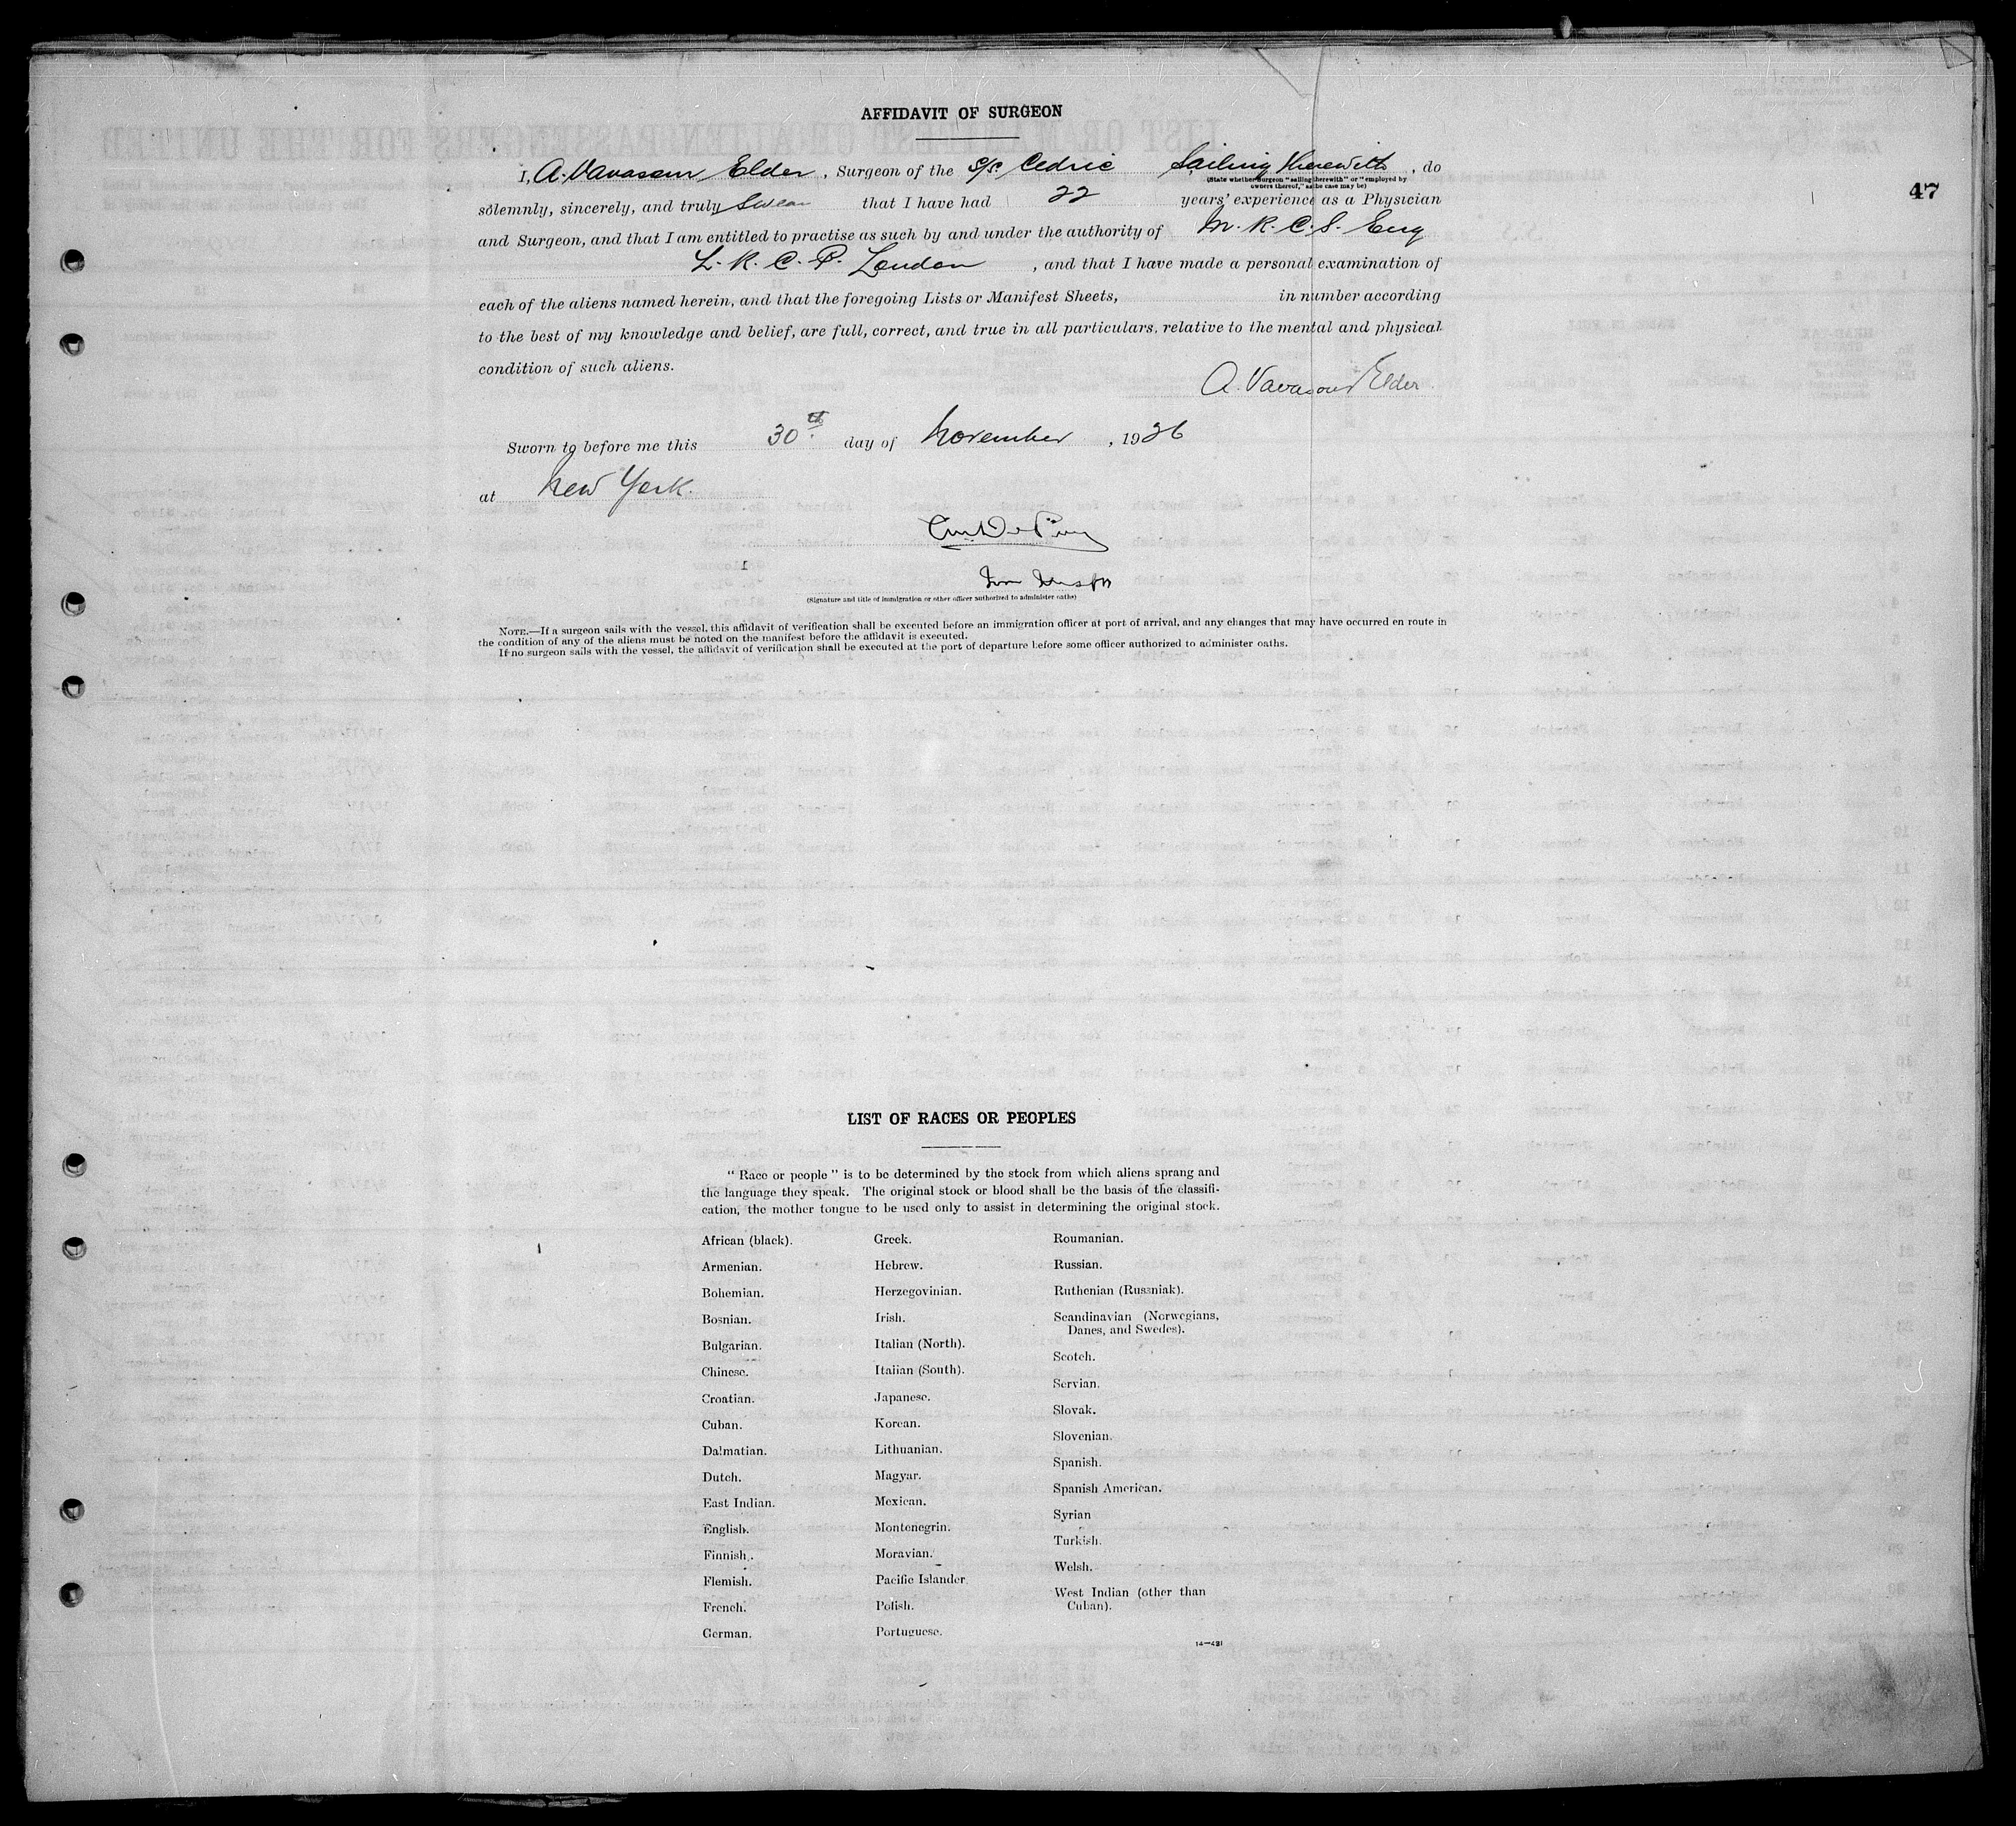 AFFIDAVIT OF SURGEON
47
I, A. Vavasour Elder, Surgeon of the S/S. Cedric Sailing Therewith, do
(State whether Surgeon "sailing therewith" or "employed by
owners thereof," as the case may be)
solemnly, sincerely, and truly swear that I have had 22 years' experience as a Physician
and Surgeon, and that I am entitled to practise as such by and under the authority of M.R.C.S. Eng
L.R.C.P. London, and that I have made a personal examination of
each of the aliens named herein, and that the foregoing Lists or Manifest Sheets, in number according
to the best of my knowledge and belief, are full, correct, and true in all particulars, relative to the mental and physical
condition of such aliens.
A. Vavasour Elder.
Sworn to before me this 30th day of November, 1926
at New York.
(Signature and title of immigration or other officer authorized to administer oaths)
NOTE.—If a surgeon sails with the vessel, this affidavit of verification shall be executed before an immigration officer at port of arrival, and any changes that may have occurred en route in
the condition of any of the aliens must be noted on the manifest before the affidavit is executed.
If no surgeon sails with the vessel, the affidavit of verification shall be executed at the port of departure before some officer authorized to administer oaths.
LIST OF RACES OR PEOPLES
"Race or people" is to be determined by the stock from which aliens sprang and
the language they speak. The original stock or blood shall be the basis of the classifi-
cation, the mother tongue to be used only to assist in determining the original stock.
African (black).
Armenian.
Bohemian.
Bosnian.
Bulgarian.
Chinese.
Croatian.
Cuban.
Dalmatian.
Dutch.
East Indian.
English.
Finnish.
Flemish.
French.
German.
Greek.
Hebrew.
Herzegovinian.
Irish.
Italian (North).
Italian (South).
Japanese.
Korean.
Lithuanian.
Magyar.
Mexican.
Montenegrin.
Moravian.
Pacific Islander.
Polish.
Portuguese.
Roumanian.
Russian.
Ruthenian (Russniak).
Scandinavian (Norwegians,
Danes, and Swedes).
Scotch.
Servian.
Slovak.
Slovenian.
Spanish.
Spanish American.
Syrian
Turkish.
Welsh.
West Indian (other than
Cuban).
14—421